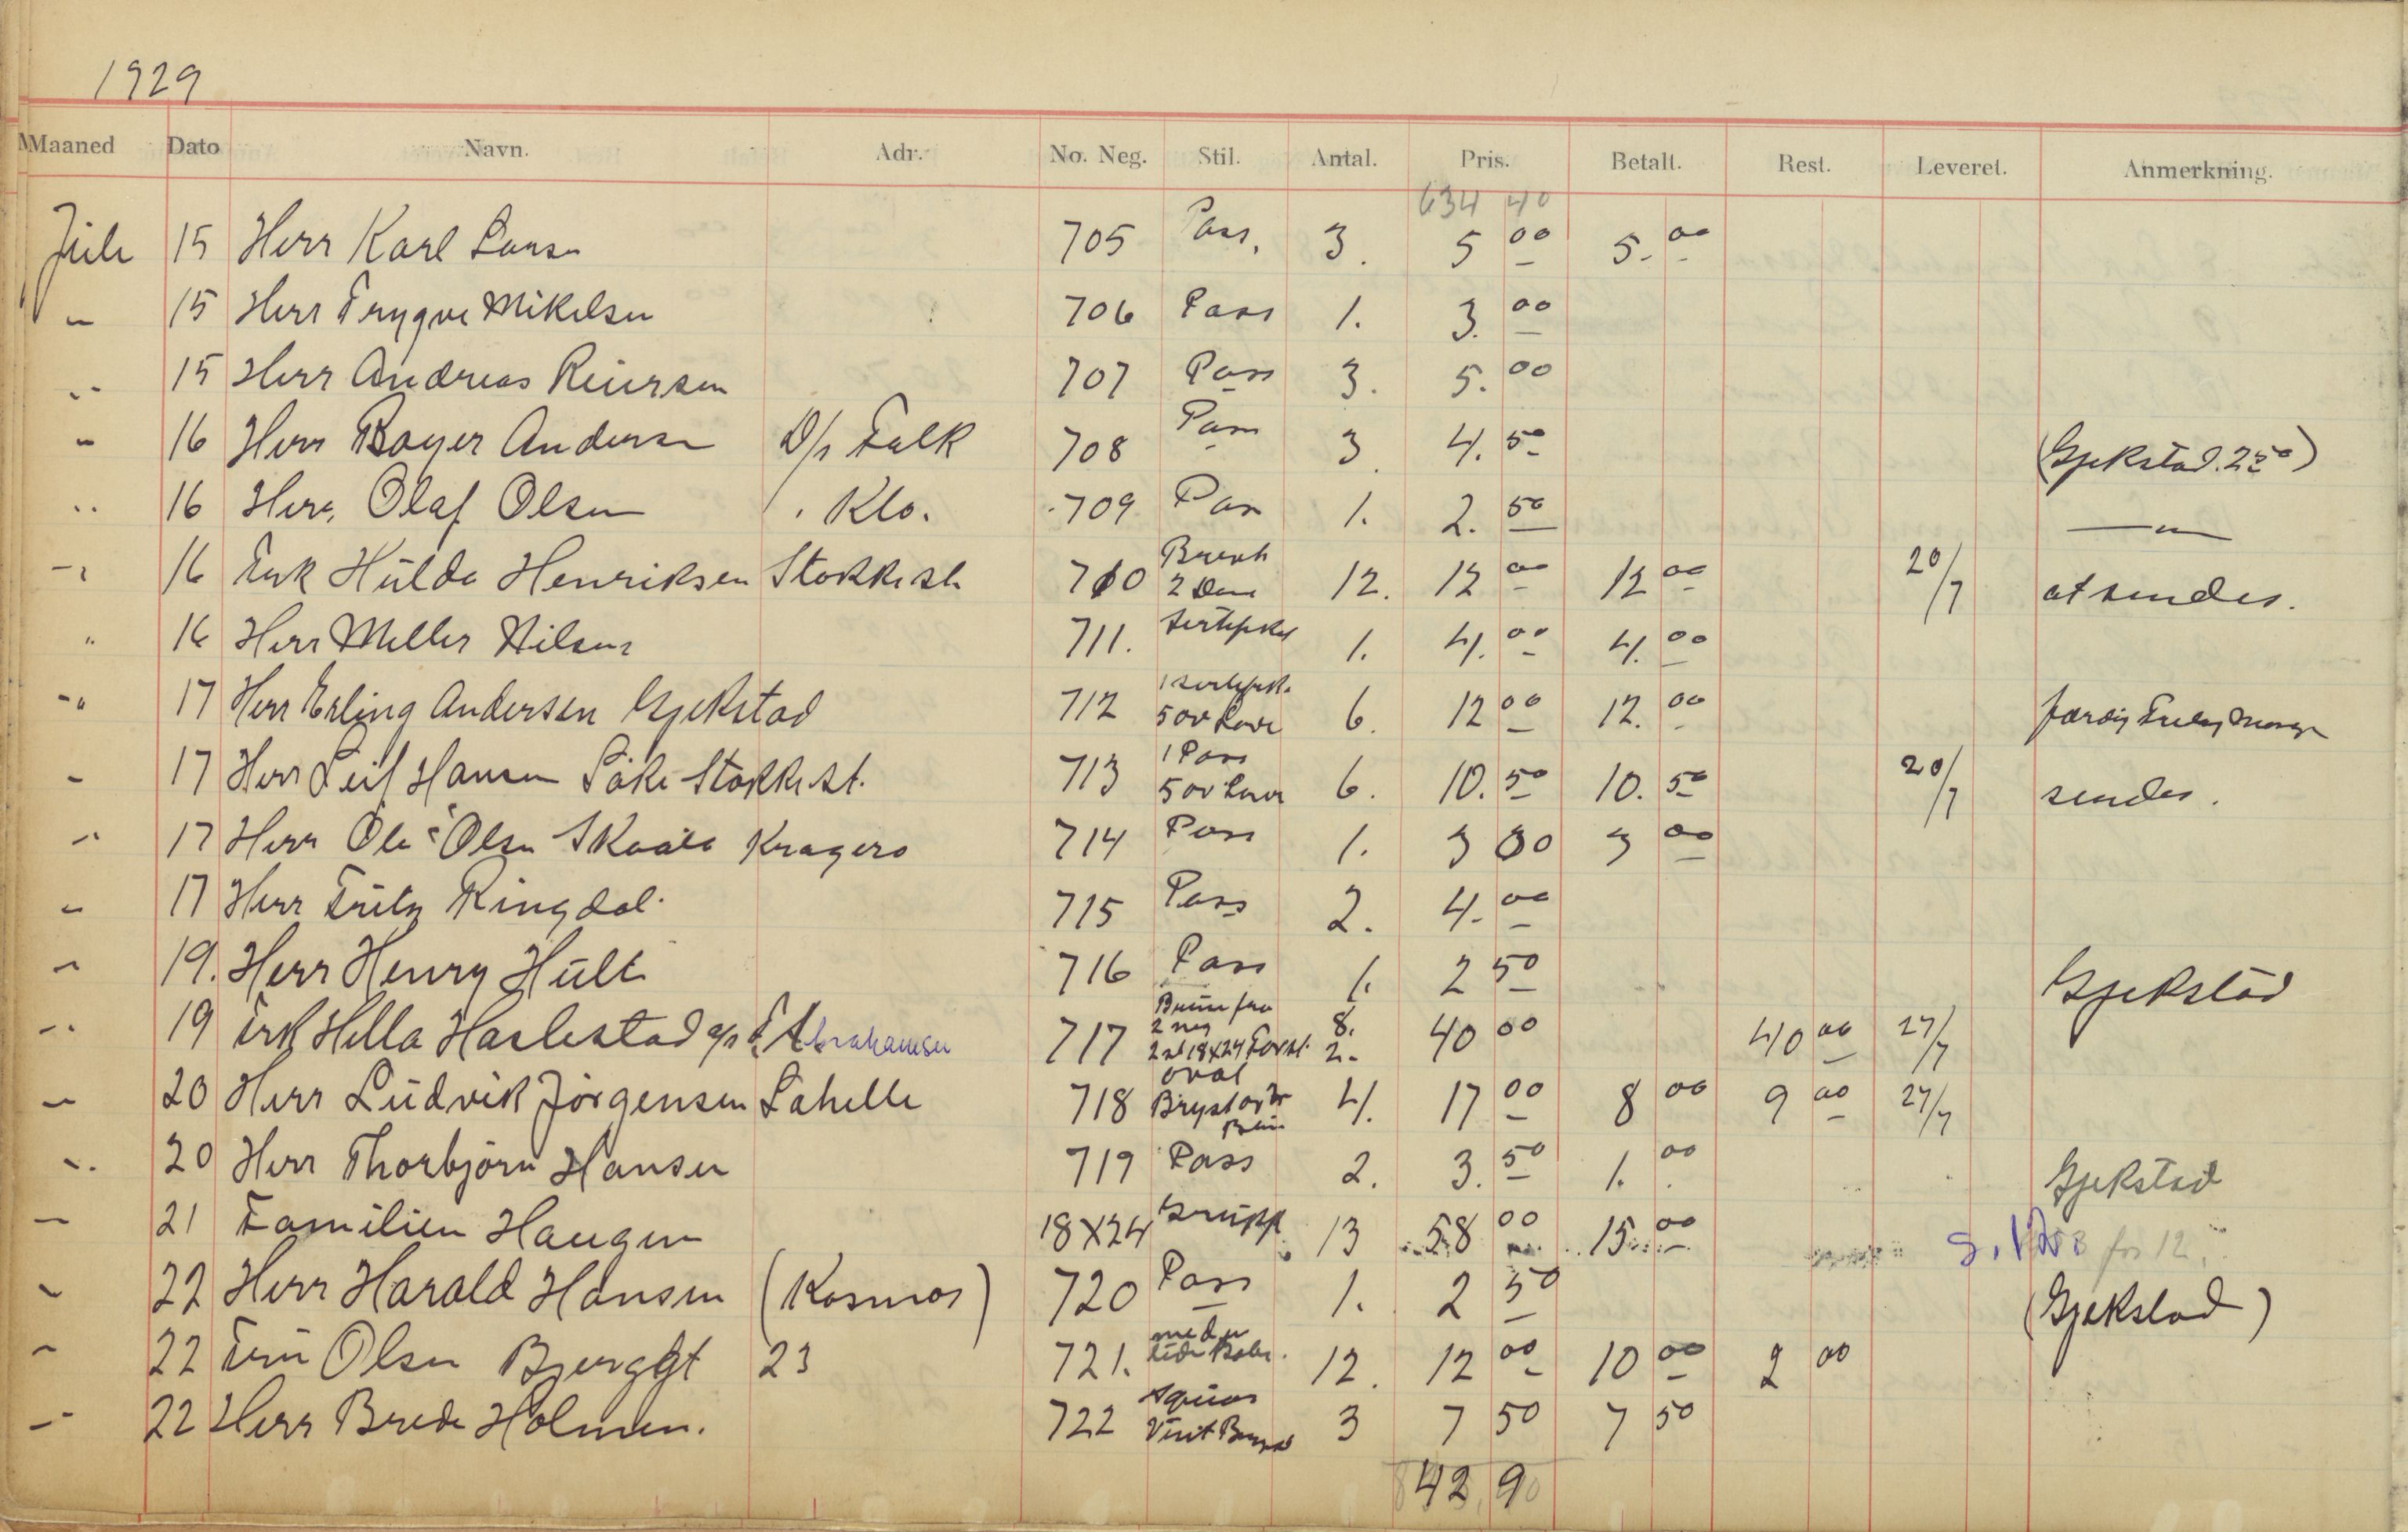 1929
Maaned Dato Navn. Adr. No. Neg. Stil. Antal. Pris. Betalt. Rest. Leveret. Anmerkning.
634 40
Juli 15 Herr Karl Larsen 705 Pass. 3. 5 00 5. 00
" 15 Herr Trygve Mikelsen 706 Pass 1. 3. 00
" 15 Herr Andreas Reiersen 707 Pass 3. 5. 00
" 16 Herr Andersen D/s Falk 708 Pass 3 4. 50 (Gjekstad. 2 50)
" 16 Herr. Olaf Olsen Klo. 709 Pass 1. 2. 50 — " —
" 16 Frk Hülda Henriksen Stokke st. 710 2 12. 12 00 12 00 20/7 at sendes.
" 16 Herr Meller Nilsen 711. 1. 4. 00 4. 00
" 17 Herr Erling Andersen Gjekstad 712 1 6. 12 00 12. 00 færdig
" 17 Herr Leif Hansen Stokke st. 713 1 Pass 6. 10. 50 10. 50 20/7 sendes.
" 17 Herr Ole Olsen Kragerø 714 Pass 1. 3 00 3 00
" 17 Herr Fritz Ringdal. 715 Pass 2. 4. 00
" 19. Herr Henry Hült 716 Pass 1. 2 50 Gjekstad
" 19 Frk Hella Haslestad Abrahamsen 717 2 neg 18x24 8. 2. 40 00 40 00 27/7
" 20 Herr Lüdvik Jörgensen Lahelle 718 oval 4. 17 00 8 00 9 00 27/7
" 20 Herr Thorbjörn Hansen 719 Pass 2. 3. 50 1. 00 Gjekstad
" 21 Familien Haugen 18x24 Grüpp 13 58 00 15 00 for 12.
" 22 Herr Harald Hansen (Kosmos) 720 Pass 1. 2 50 (Gjekstad)
" 22 Frü Olsen Bjerggt 23 721. 12. 12 00 10 00 2 00
" 22 Herr Brede Holmen. 722 Visit 3 7 50 7 50
842 90